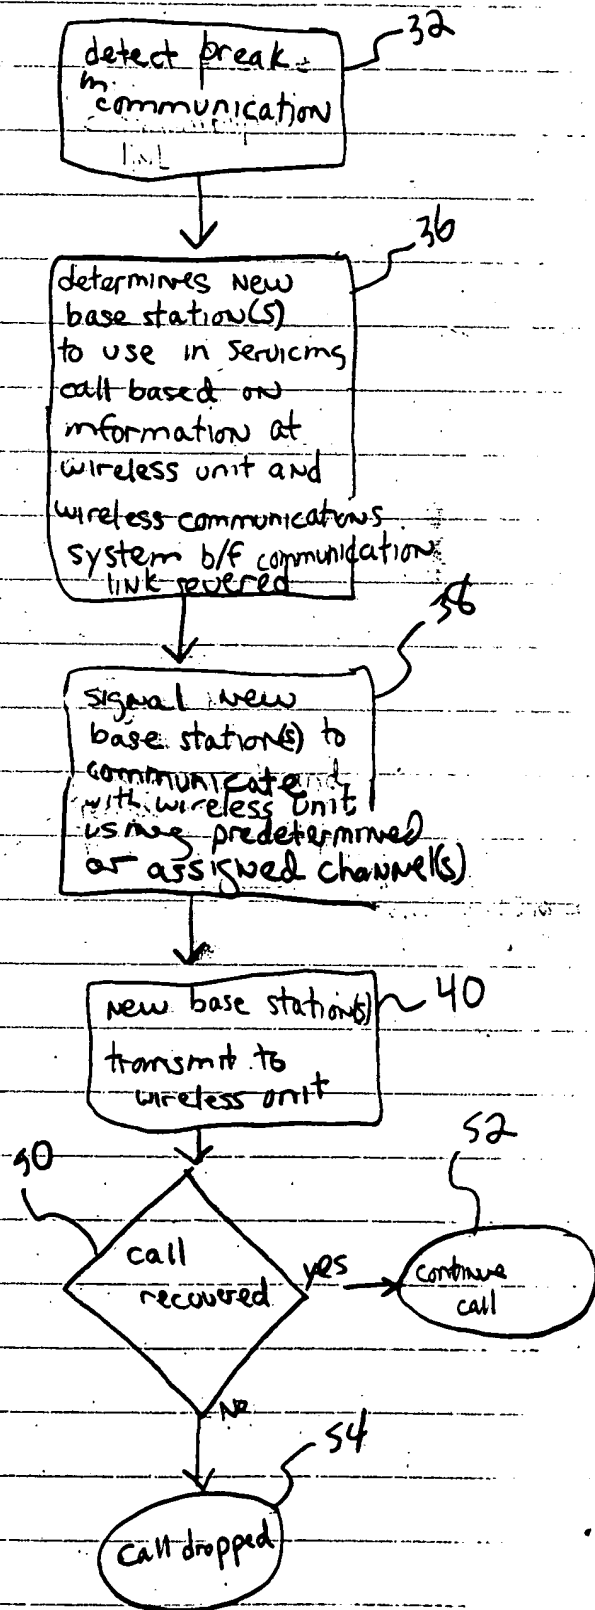 32
detect break
in
communication
link
36
determines new
base station(s)
to use in servicing
call based on
information at
wireless unit and
wireless communications
system b/f communication
link severed
38
signal new
base station(s) to
communicate
with wireless unit
using predetermined
or assigned channel(s)
40
new base station(s)
transmit to
wireless unit
50
call
recovered
yes
52
continue
call
No
54
call dropped